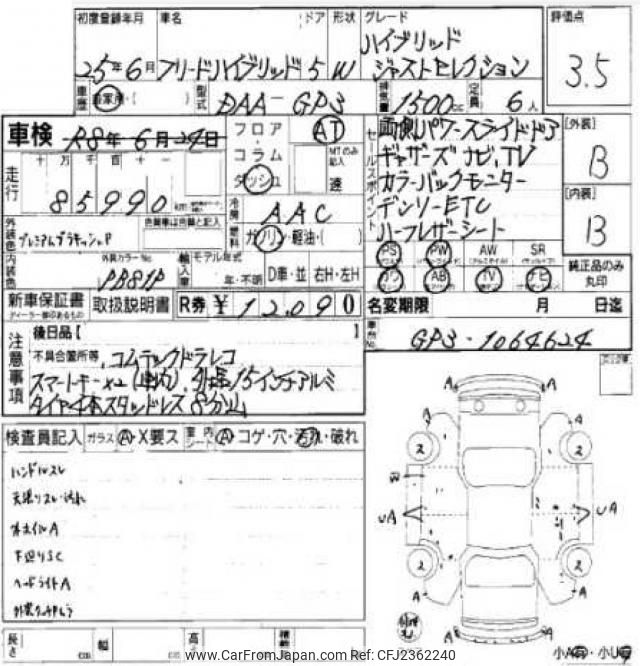 初度登録年月 車名 ドア 形状 グレード 評価点
25年6月 フリードハイブリッド 5 W ハイブリッド
ジャストセレクション 3.5
車歴 自家用・( ) 型式 DAA-GP3 排気量 1500cc 定員 6人
車検 R8年6月24日 フロア AT
コラム MTのみ記入
ダッシュ 速
走行 十 万 千 百 十 一
85990 km
冷房 AAC
燃料 ガソリン・軽油・( )
セールスポイント 両側パワースライドドア
ギャザーズナビ,TV
カラーバックモニター
デンソーETC
ハーフレザーシート
[外装] B
[内装] B
外装色 色替車は色番と記入
内装色 外装カラーNo. PB81P
輸入車 モデル年式 年・不明 D車・並 右H・左H
PS PW AW SR
AB TV
純正品のみ丸印
新車保証書 取扱説明書 R券 ¥12,090
ディーラー印のあるもの
名変期限 月 日迄
車台No. GP3-1064624
注意事項
後日品[ ]
不具合箇所等, コムテックドラレコ
スマートキー×2(車内),
タイヤ4本スタッドレス8分山
検査員記入 ガラス A・X要ス 車内シート A・コゲ・穴・汚れ・破れ
ハンドルスレ
天張りスレ・汚れ
ホイルA
下廻りSC
ヘッドライトA
A A
A A
2 2
UA UA
2 2
A A
A A
長さ cm 幅 cm 高さ
小A 小U
www.CarFromJapan.com Ref: CFJ2362240